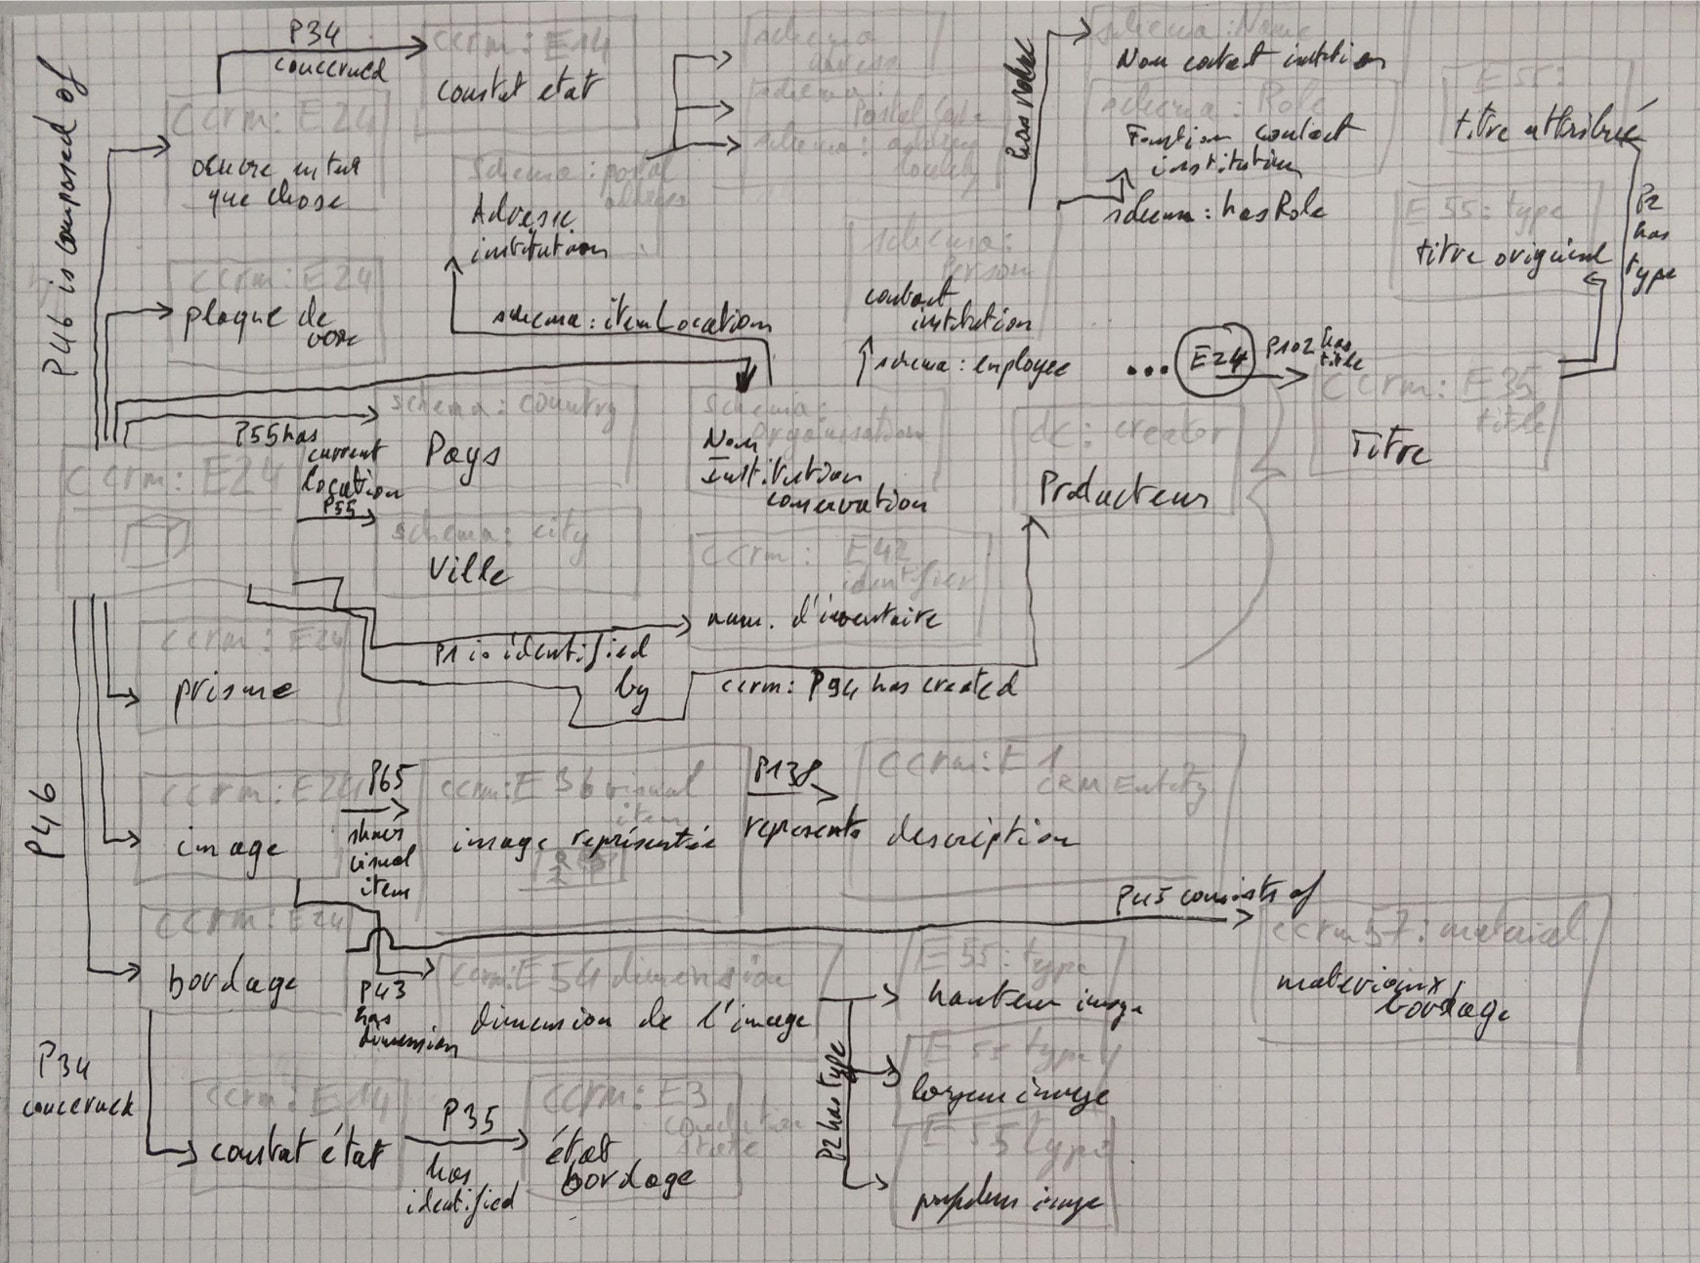 P46 is composed of
P34
concerned
ccrm: E14
constat état
ccrm: E24
oeuvre en tant
que chose
schema
adress
schema:
Postal Code
schema: address
schema: postal
adress
Adresse
institution
has role
schema: Name
Nom contact institution
schema: Role
Fonction contact
institution
schema: hasRole
E55:
titre attribué
E55: type
titre original
P2
has
type
ccrm: E24
plaque de
verre
schema: itemLocation
schema:
Person
contact
institution
schema: employee
... E24
P102 has
title
ccrm: E35
title
Titre
P55 has
current
location
P55
schema: country
Pays
schema:
Organisation
Nom
Institution
conservation
dc: creator
Producteur
ccrm: E24
schema: city
Ville
ccrm: E42
identifier
num. d'inventaire
P1 is identified
by
ccrm: P94 has created
ccrm: E24
prisme
P46
ccrm: E24
image
P65
shows
visual
item
ccrm: E36 visual
item
image représentée
P138
represents
ccrm: E1
CRM Entity
description
P45 consists of
ccrm: E24
bordage
P43
has
dimension
ccrm: E54 dimension
dimension de l'image
P2 has type
E55: type
hauteur image
E55 type
largeur image
E55 type
profondeur image
ccrm 57: material
materiaux
bordage
P34
concerned
ccrm: E14
constat état
P35
has
identified
ccrm: E3
condition
state
état
bordage